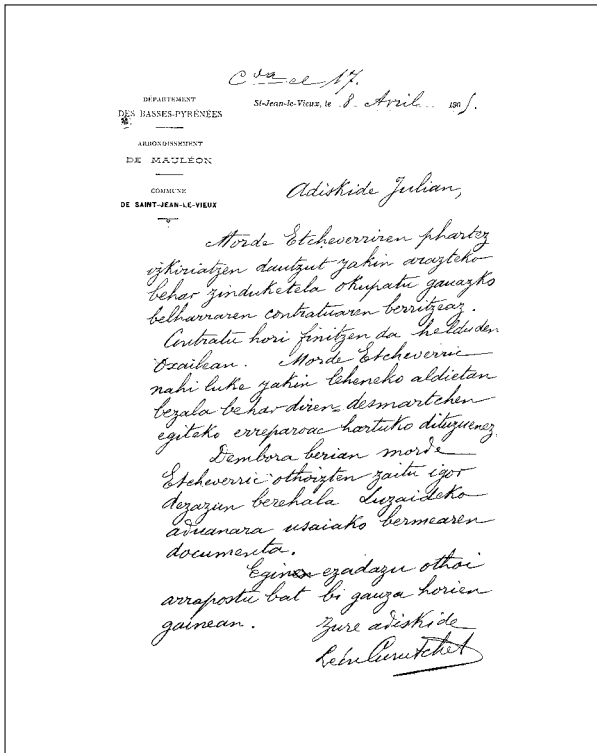 C^da el 17.
DÉPARTEMENT
DES BASSES-PYRÉNÉES
St-Jean-le-Vieux, le 8. Avril 1905.
ARRONDISSEMENT
DE MAULÉON
COMMUNE
DE SAINT-JEAN-LE-VIEUX
Adiskide Julian,
Morde Etcheverriren phartez
izkiriatzen dautzut jakin arazteko
behar zinduketela okupatu gauazko
belharraren contratuaren berritzeaz.
Contratu hori finitzen da heldu den
Ozailean. Morde Etcheverric
nahi luke jakin leheneko aldietan
bezala behar diren desmartchen
egiteko erreparoac hartuko dituzuenez.
Dembora berian morde
Etcheverric othoizten zaitu igor
dezazun berehala Luzaideko
aduanara usaiako bermearen
documenta.
Egin ezadazu othoi
arrapostu bat bi gauza horien
gainean. Zure adiskide
Léon Curutchet